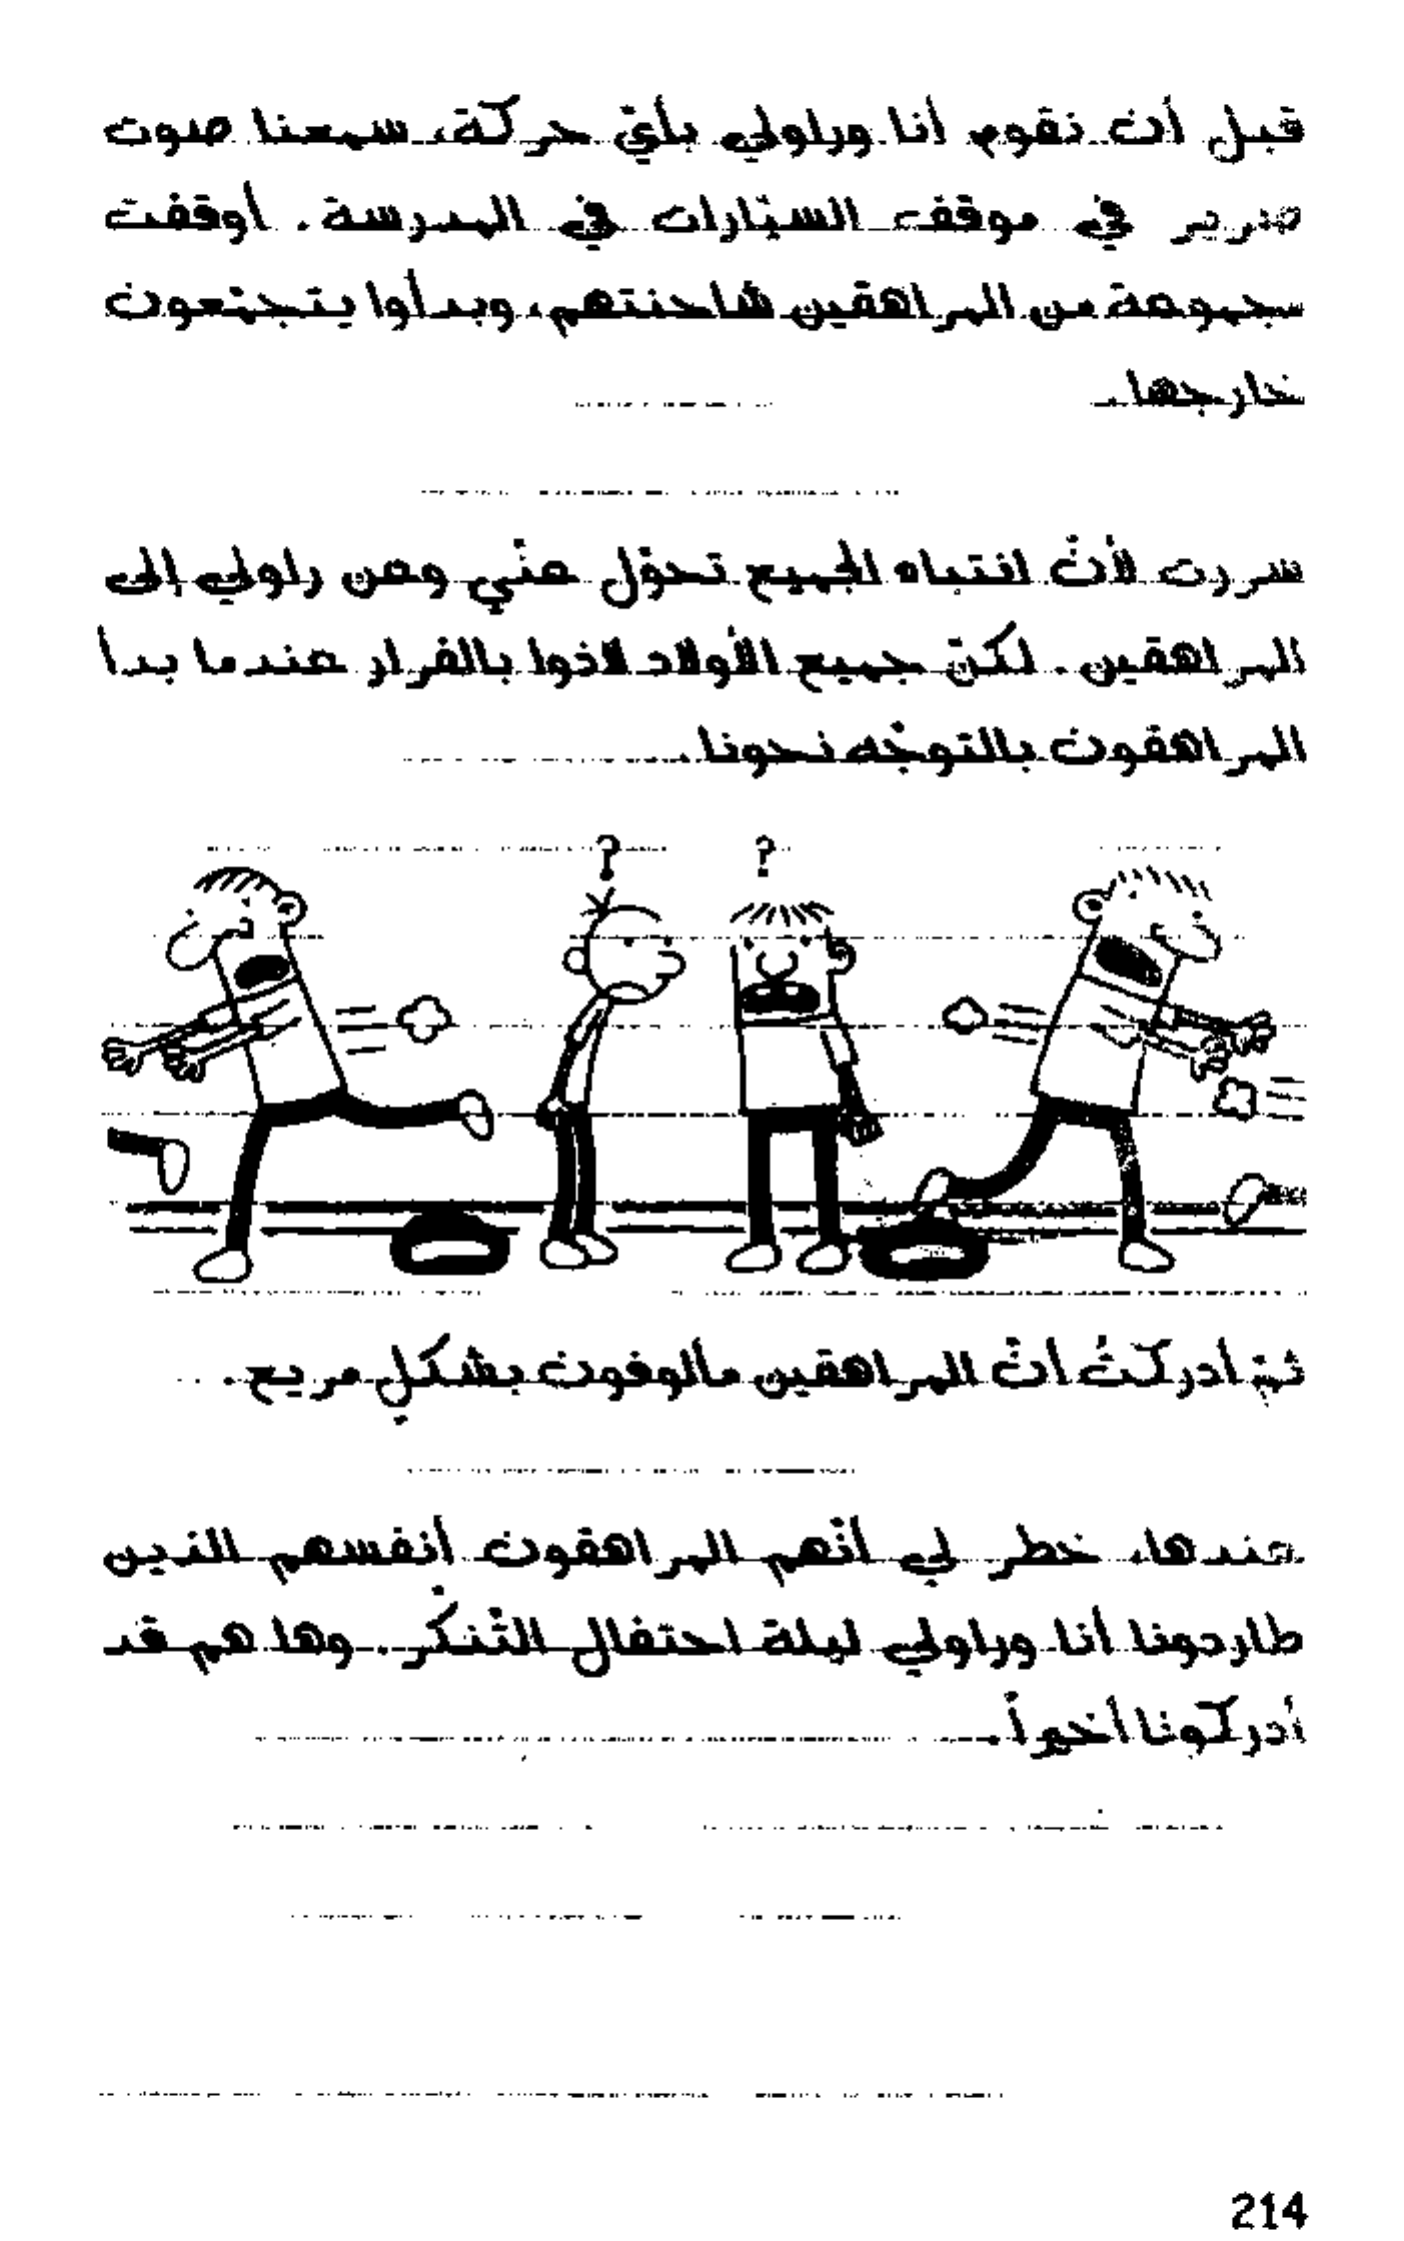 قبل أن نقوم أنا وراولي بأيّ حركة، سمعنا صوت
صرير في موقف السيّارات في المدرسة. أوقفت
مجموعة من المراهقين شاحنتهم، وبدأوا يتجمّعون
خارجها.
سررت لأنّ انتباه الجميع تحوّل عنّي وعن راولي إلى
المراهقين. لكنّ جميع الأولاد لاذوا بالفرار عندما بدأ
المراهقون بالتوجّه نحونا.
? ?
ثمّ أدركتُ أنّ المراهقين مألوفون بشكلٍ مريع.
عندها، خطر لي أنّهم المراهقون أنفسهم الذين
طاردونا أنا وراولي ليلة احتفال التّنكّر. وها هم قد
أدركونا أخيراً.
214